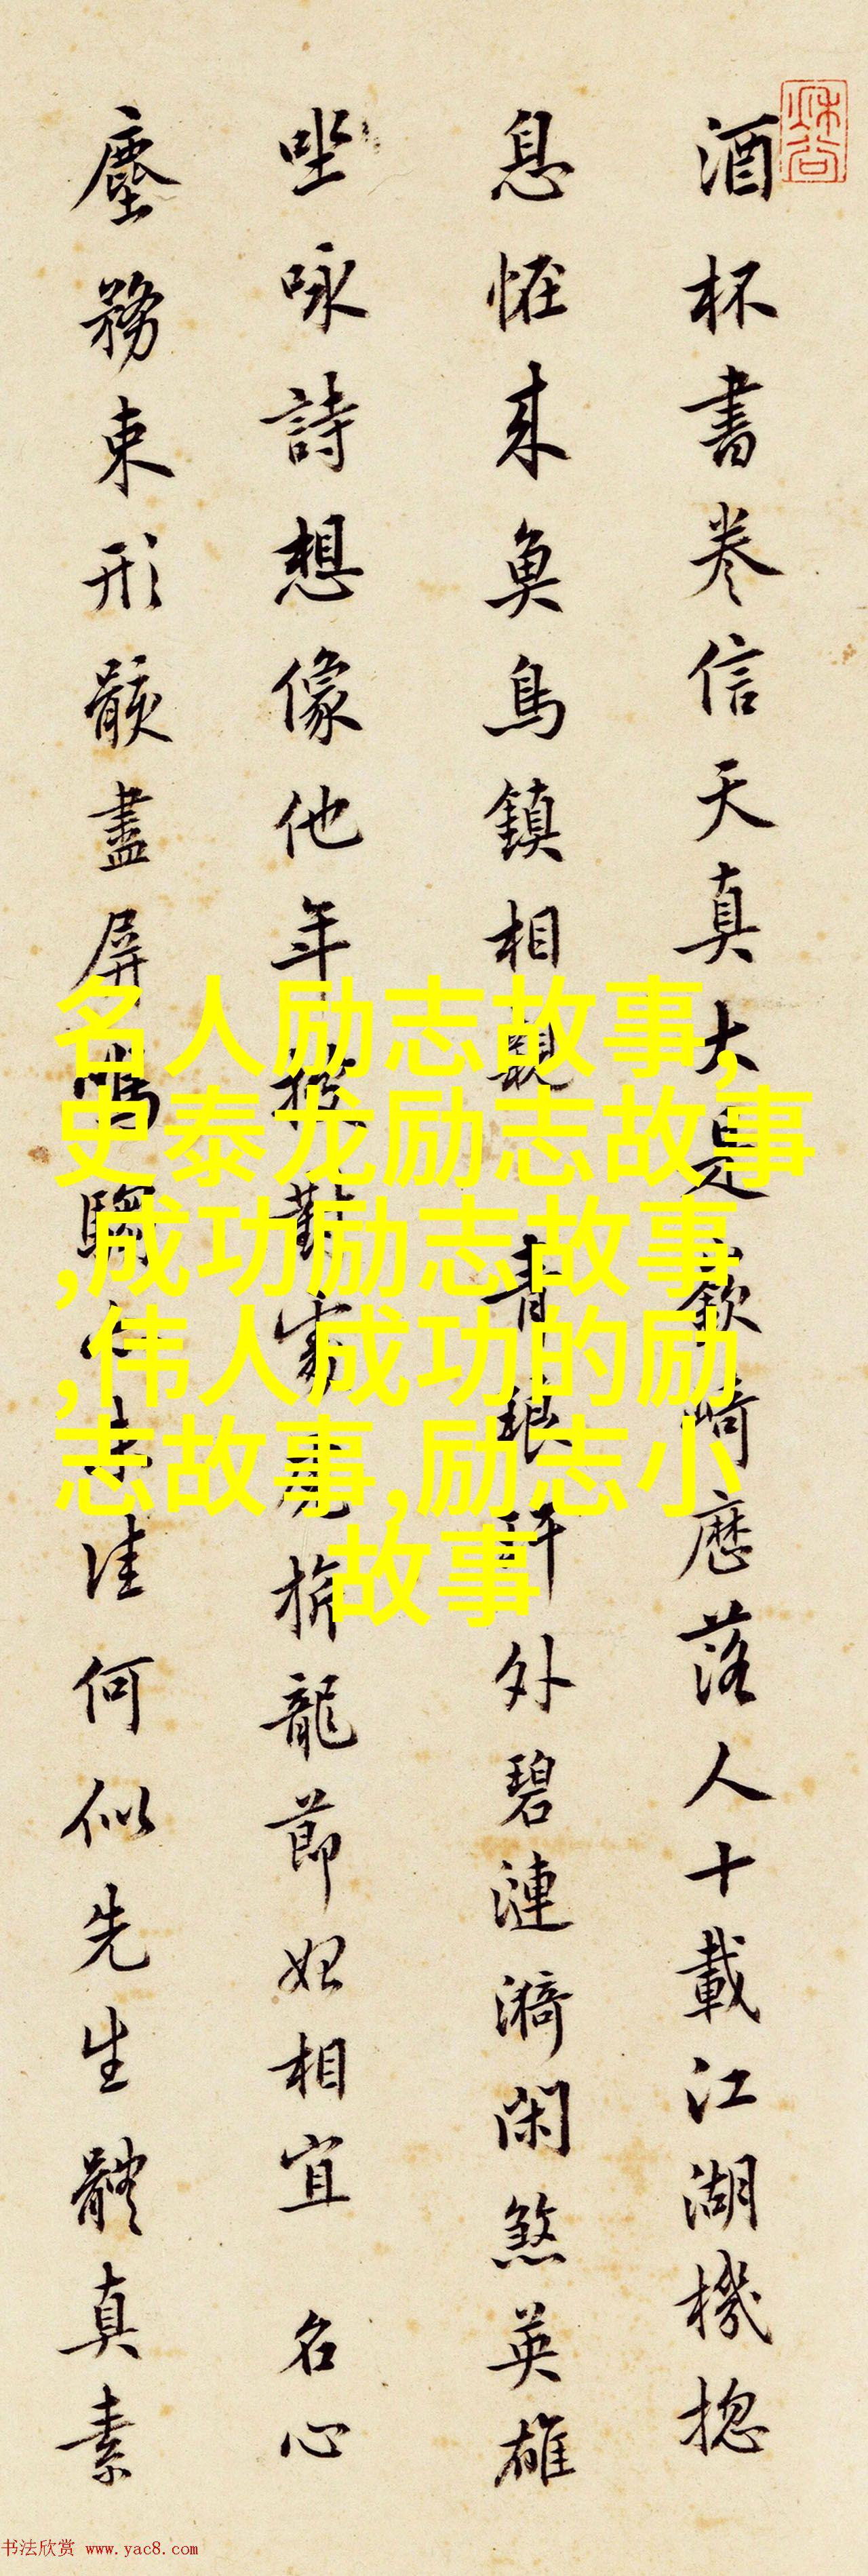 酒杯書卷信天真大是嶔崎歷落人十載江湖機揔
息恠来魚鳥鎮相親 青粮軒外碧漣漪閑煞英雄
坐咏詩想像他年龍節妃相宜 名心
塵務束形骸盡屏鳴騶佳何似先生體真素
名人励志故事,
史泰龙励志故事
,成功励志故事
,伟人成功的励
志故事,励志小
故事
书法欣赏 www.yac8.com